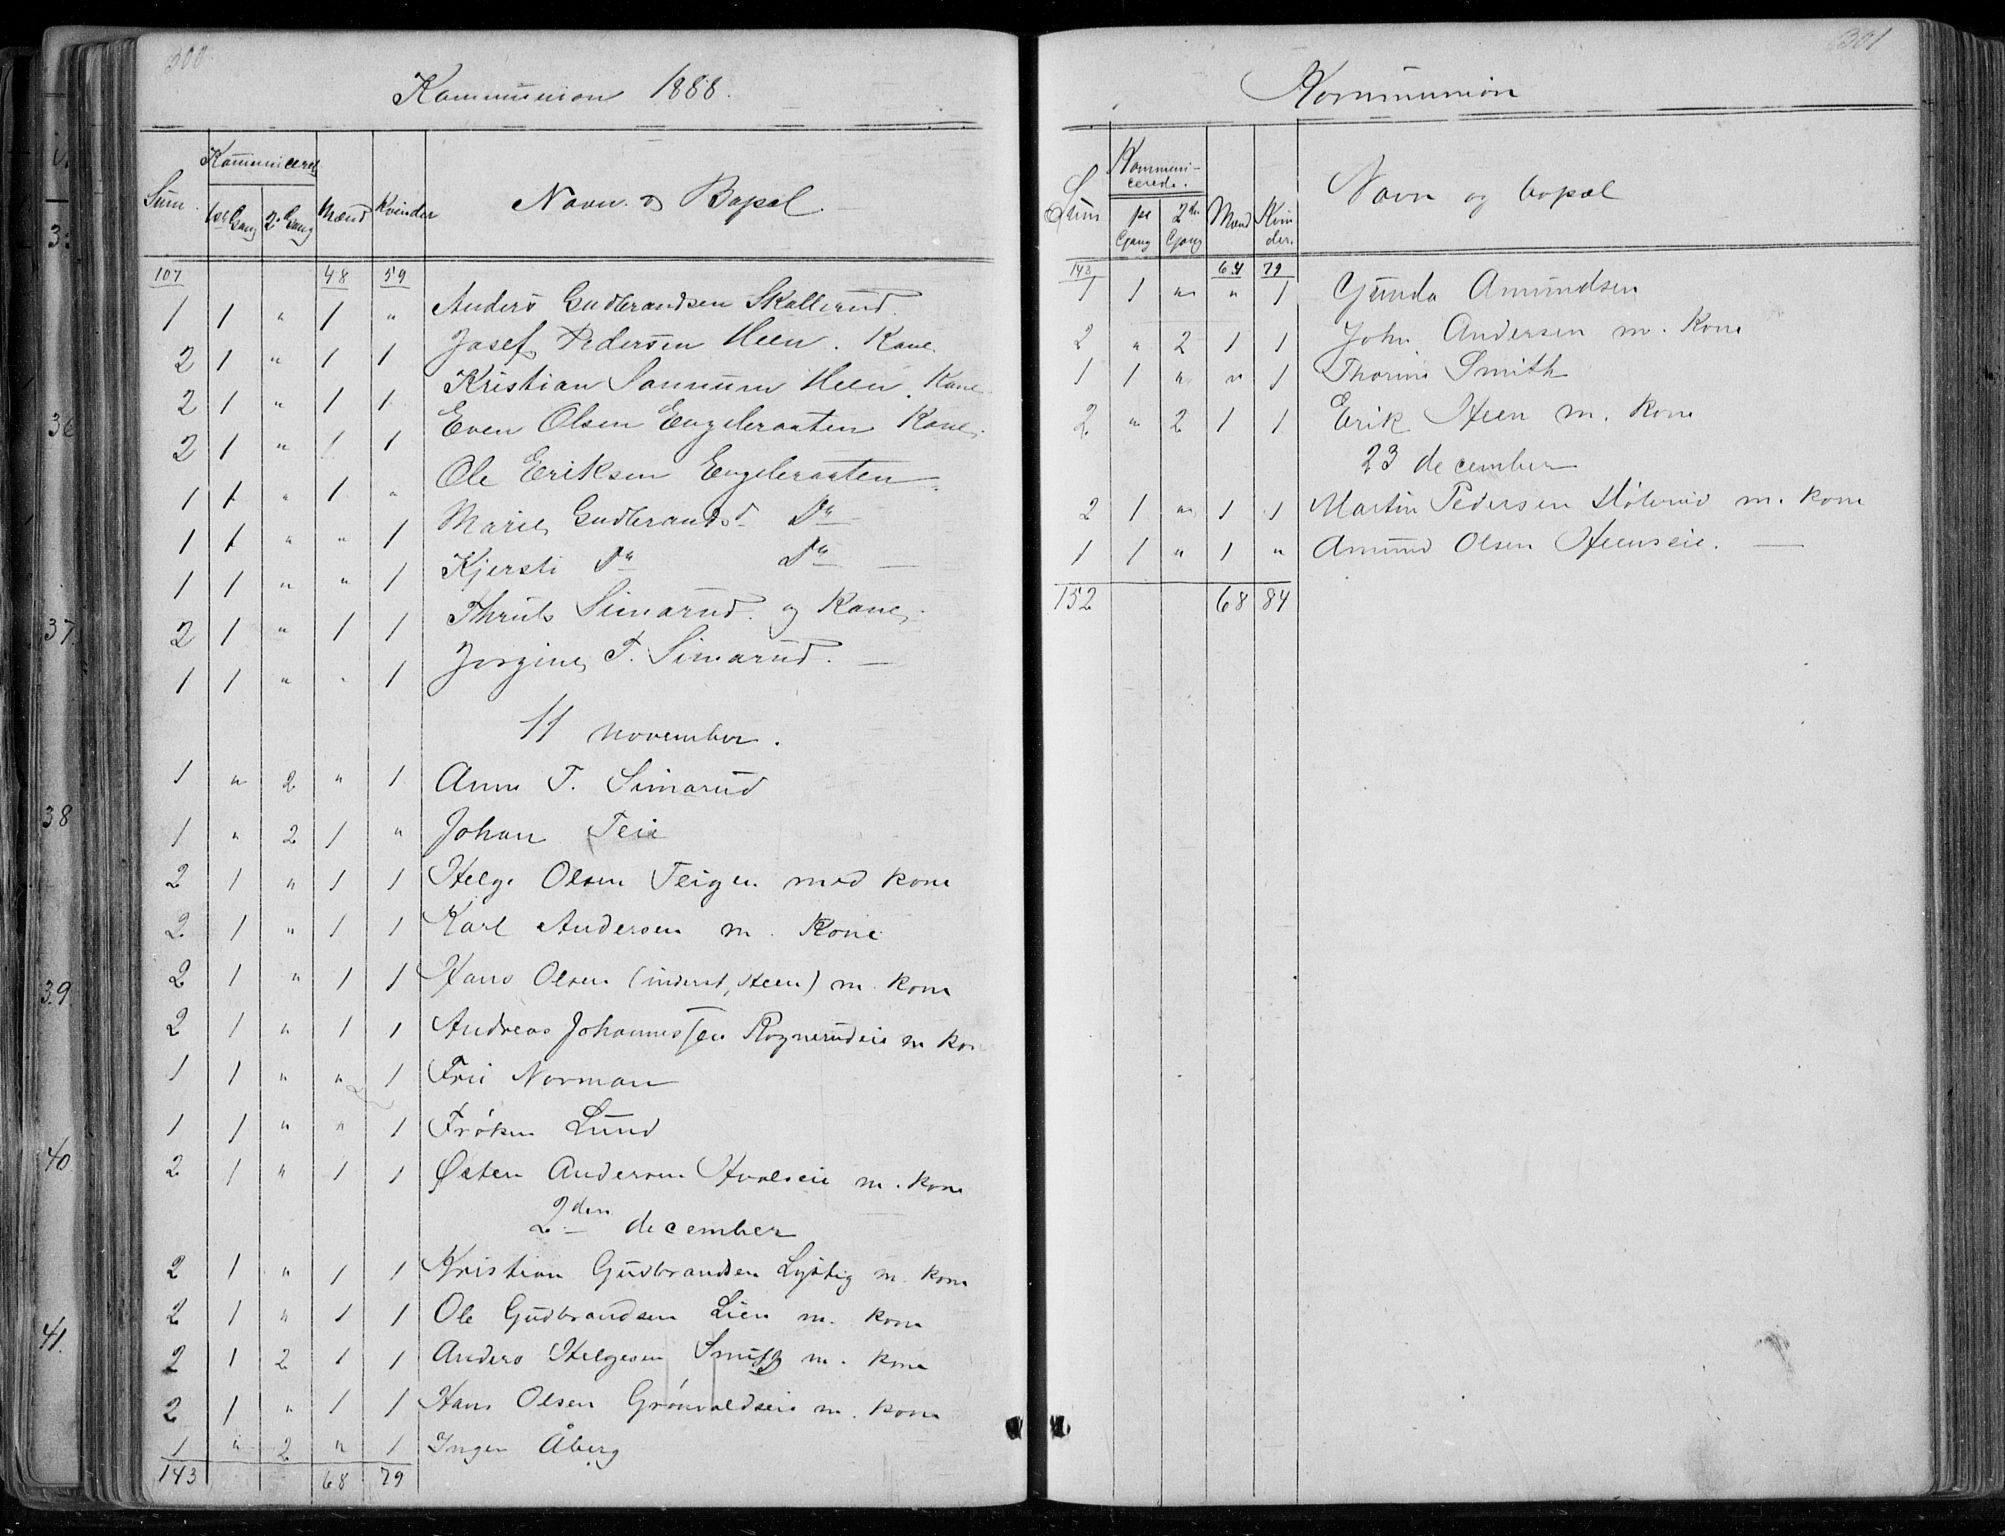 300.
Kommunion 1888.
Sum. Kommunicerede Mænd Kvinder Navn og Bopæl.
1ste Gang 2. Gang
107 48 59
1 1 " 1 " Anders Gudbrandsen Skollerud.
2 1 " 1 1 Josef Pedersen Heen. Kone
2 1 " 1 1 Kristian Heen. Kone
2 1 " 1 1 Even Olsen Engebraaten Kone.
1 1 " 1 " Ole Eriksen Engebraaten
1 1 " " 1 Marie Gudbrandsd. Do
1 1 " " 1 Kjersti Do Do
2 1 " 1 1 Thruls Simarud. og Kone.
1 1 " " 1 Jorgine T. Simarud.
11 november.
1 " 2 " 1 Anne T. Simarud
1 " 2 1 " Johan Teie
2 1 " 1 1 Helge Olsen Teigen med kone
2 1 " 1 1 Karl Andersen m. Kone
2 1 " 1 1 Hans Olsen (inderst, Heen) m. kone
2 1 " 1 1 Andreas Johannessen Rognerudeie m kon
1 1 " " 1 Fru Norman
1 1 " " 1 Frøken Lund
2 1 " 1 1 Østen Andersen Hvalseie m. kone
2den december
2 1 " 1 1 Kristian Gudbrandsen Lystig m. kone
2 1 " 1 1 Ole Gudbrandsen Lien m. kone
2 1 2 1 1 Anders Helgesen m. kone
2 1 " 1 1 Hans Olsen Grønvoldseie m. kone
1 " 2 " 1 Inger Åberg
143 68 79
301
Kommunion
Sum Kommuni-cerede. Mænd Kvinder. Navn og bopæl
1ste Gang 2den Gang
143 64 79
1 1 " " 1 Gunda Amundsen
2 " 2 1 1 John Andersen m. Kone
1 1 " " 1 Thorine Smith
2 " 2 1 1 Erik Heen m. kone
23 december
2 1 " 1 1 Martin Pedersen m. kone
1 1 " 1 " Amund Olsen Heenseie.
152 68 84
36
37.
38
39.
40
41.